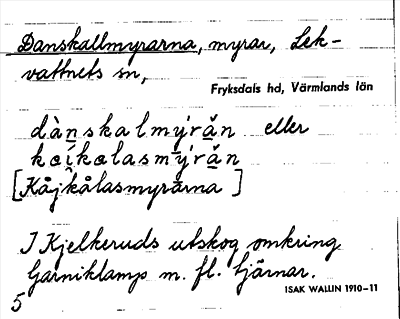 Danskallmyrarna, myrar, Lek-
vattnets sn,
Fryksdals hd, Värmlands län
dànskalmýrǎn eller
kœíkœlasmýrǎn
[Kåjkålasmyrarna]
I Kjelkeruds utskog omkring
Garniklamp m. fl. tjärnar.
ISAK WALLIN 1910-11
5